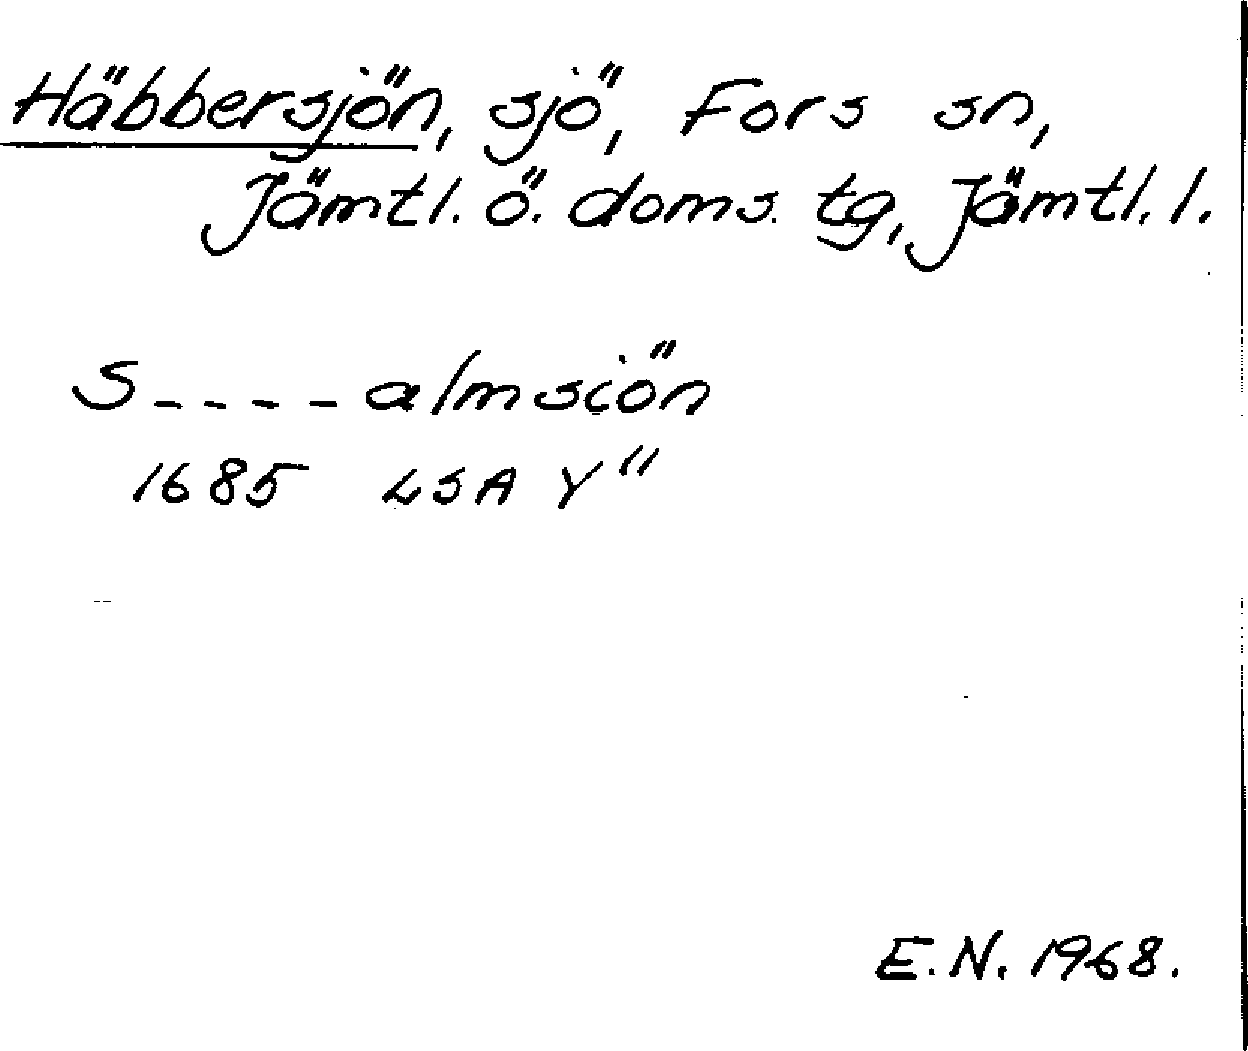 Häbbersjön, sjö, Fors sn,
Jämtl. ö. doms. tg, Jämtl. l.
S----almsiön
1685 LSA Y"
E.N. 1968.